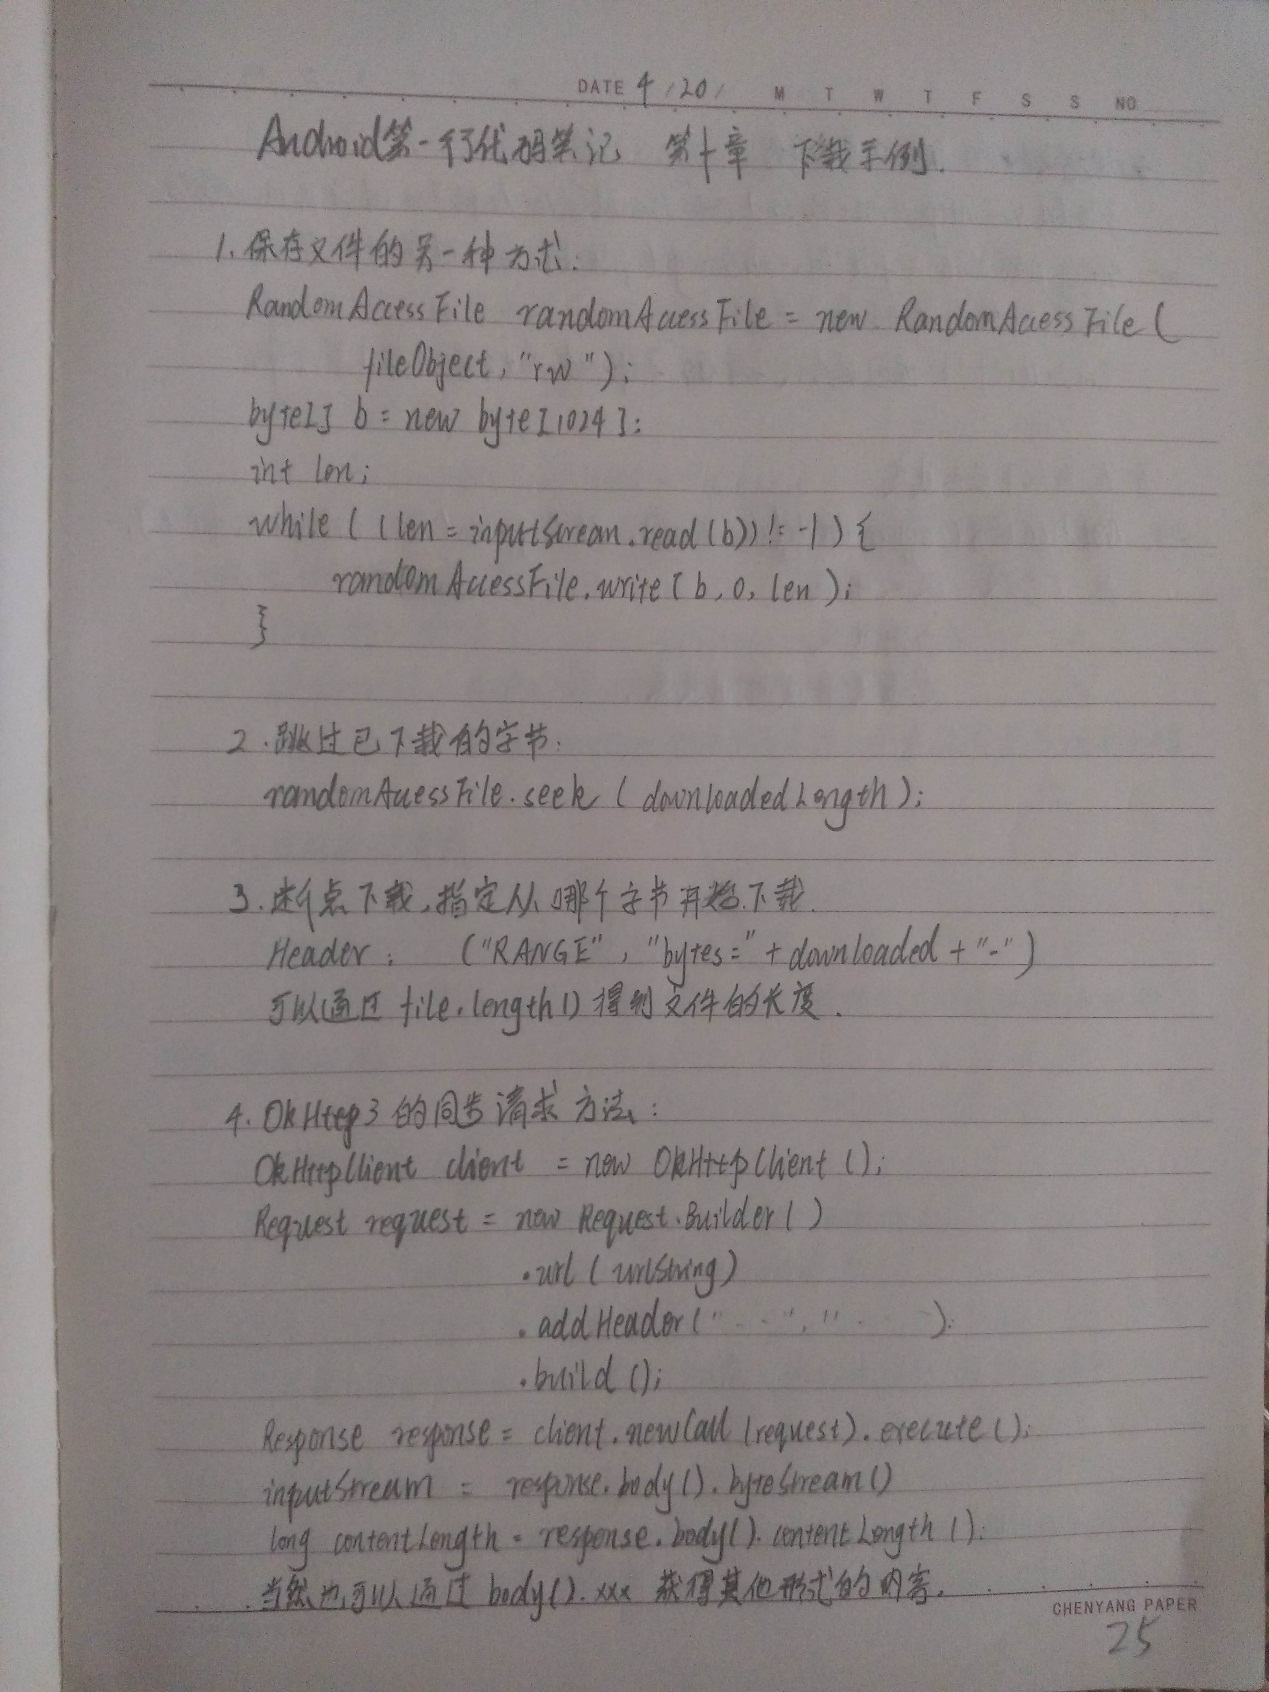 DATE 4/20/ M T W T F S S NO
Android第一行代码笔记 第十章 下载示例.
1.保存文件的另一种方式:
RandomAccessFile randomAccessFile = new RandomAccessFile(
fileObject, "rw");
byte[] b = new byte[1024];
int len;
while ((len = inputStream.read(b)) != -1) {
randomAccessFile.write(b, 0, len);
}
2.跳过已下载的字节:
randomAccessFile.seek(downloadedLength);
3.断点下载,指定从哪个字节开始下载.
Header: ("RANGE", "bytes=" + downloaded + "-")
可以通过 file.length() 得到文件的长度.
4. OkHttp3 的同步请求方法:
OkHttpClient client = new OkHttpClient();
Request request = new Request.Builder()
.url(urlString)
.addHeader("...", "...).
.build();
Response response = client.newCall(request).execute();
inputStream = response.body().byteStream()
long contentLength = response.body().contentLength();
当然也可以通过 body().xxx 获得其他形式的内容.
CHENYANG PAPER
25